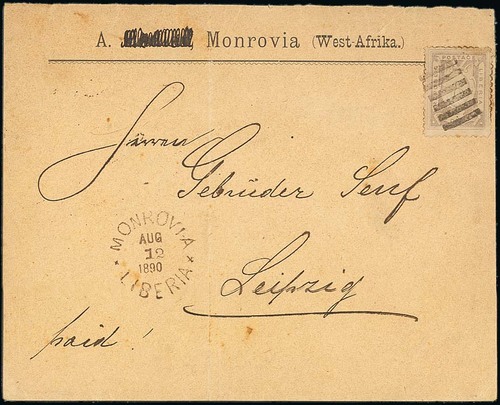 A. Monrovia (West-Afrika.)
POSTAGE
LIBERIA
Herren
Gebrüder Senf
MONROVIA
AUG
12
1890
LIBERIA
Leipzig
paid!